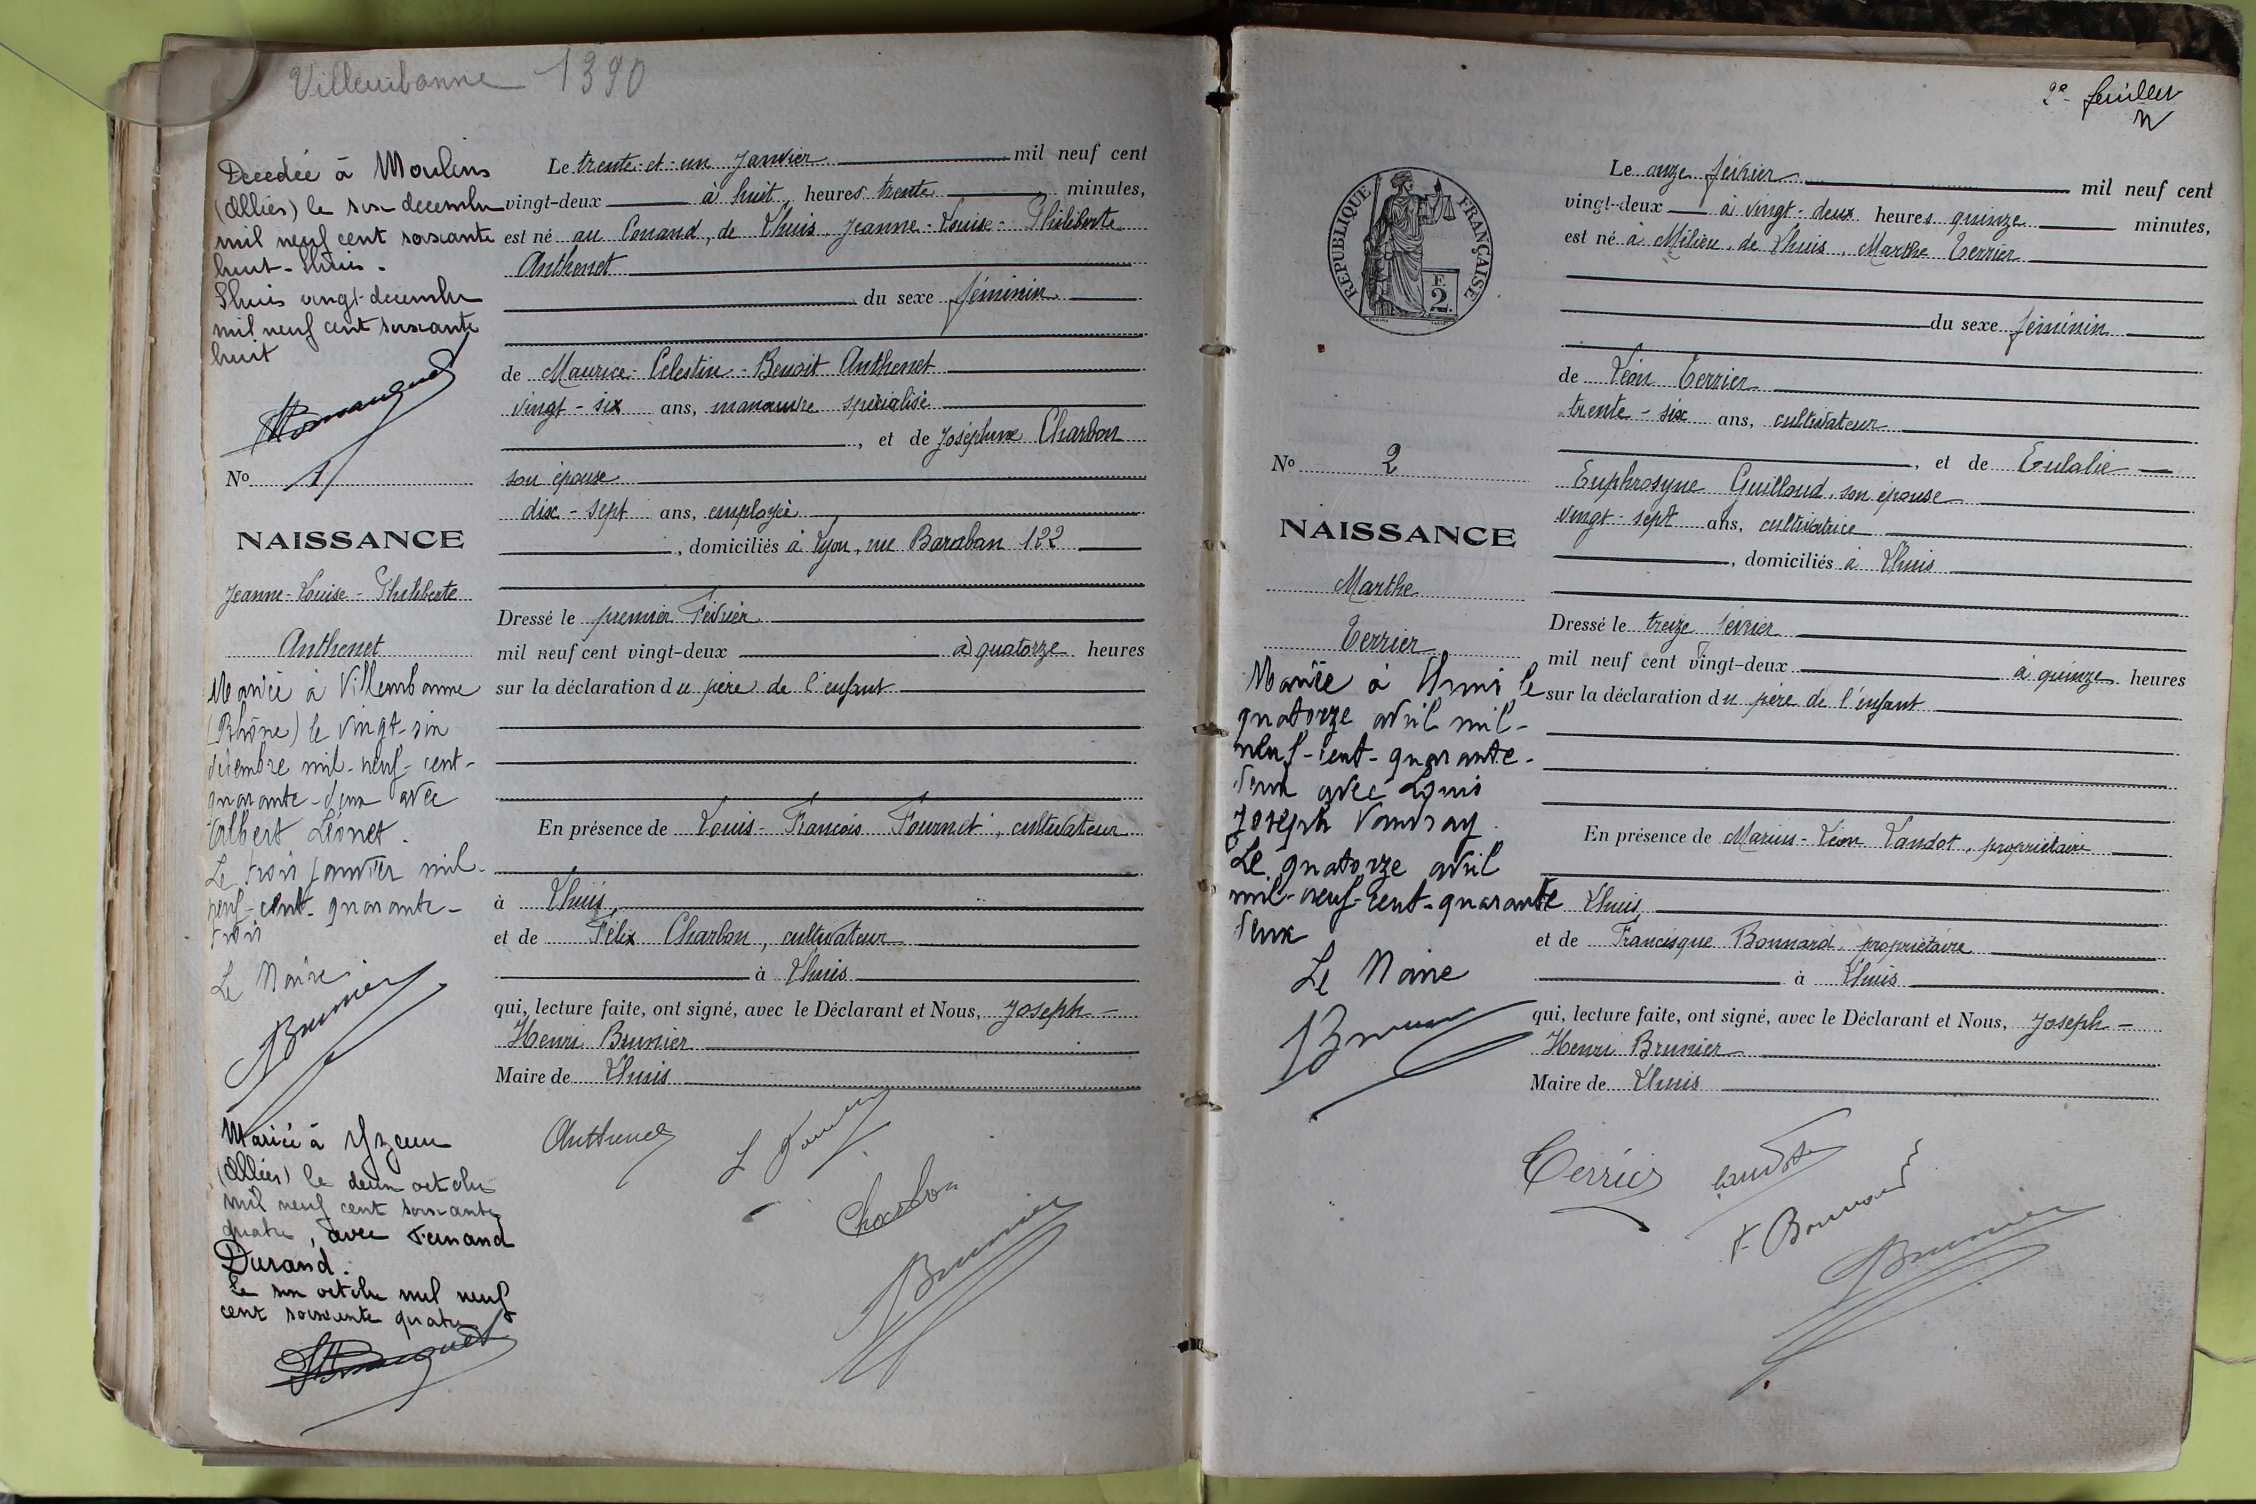 Villeurbanne 1390
Decedée à Moulins
(Allier) le six decembre
mil neuf cent soixante
huit - Lhuis.
Lhuis vingt decembre
mil neuf cent soixante
huit
No 1
NAISSANCE
Jeanne-Louise-Philiberte
Anthenet
Mariée à Villeurbanne
(Rhône) le vingt-six
décembre mil-neuf-cent-
quarante-deux avec
Albert Léonet.
Le trois janvier mil-
neuf-cent-quarante-
trois
Le Maire
Brunier
Mariée à Yzeure
(Allier) le deux octobre
mil neuf cent soixante
quatre, avec Fernand
Durand.
Le six octobre mil neuf
cent soixante quatre
Le trente-et-un Janvier mil neuf cent
vingt-deux à huit heures trente minutes,
est né au Conand, de Lhuis, Jeanne-Louise-Philiberte
Anthenet
du sexe féminin
de Maurice-Célestin-Benoit Anthenet
vingt-six ans, manœuvre spécialisé
, et de Joséphine Charbon
son épouse
dix-sept ans, employée
, domiciliés à Lyon, rue Baraban 122
Dressé le premier Février
mil neuf cent vingt-deux à quatorze heures
sur la déclaration du père de l'enfant
En présence de Louis-François Fournet, cultivateur
à Lhuis
et de Félix Charbon, cultivateur
à Lhuis
qui, lecture faite, ont signé, avec le Déclarant et Nous, Joseph-
Henri Brunier
Maire de Lhuis
Anthenet
Charbon
Brunier
2e feuillet
RÉPUBLIQUE FRANÇAISE
2 F.
No 2
NAISSANCE
Marthe
Terrier
Mariée à Lhuis le
quatorze avril mil-
neuf-cent-quarante-
deux avec Louis
Joseph Vauvray.
Le quatorze avril
mil-neuf-cent-quarante
deux
Le Maire
Brunier
Le onze février mil neuf cent
vingt-deux à vingt-deux heures quinze minutes,
est né à Milieu, de Lhuis, Marthe Terrier
du sexe féminin
de Léon Terrier
trente-six ans, cultivateur
, et de Eulalie
Euphrosyne Guilloud, son épouse
vingt-sept ans, cultivatrice
, domiciliés à Lhuis
Dressé le treize février
mil neuf cent vingt-deux à quinze heures
sur la déclaration du père de l'enfant
En présence de Marius-Léon Landot, propriétaire
Lhuis
et de Francisque Bonnard, propriétaire
à Lhuis
qui, lecture faite, ont signé, avec le Déclarant et Nous, Joseph-
Henri Brunier
Maire de Lhuis
Terrier
Landot
F. Bonnard
Brunier